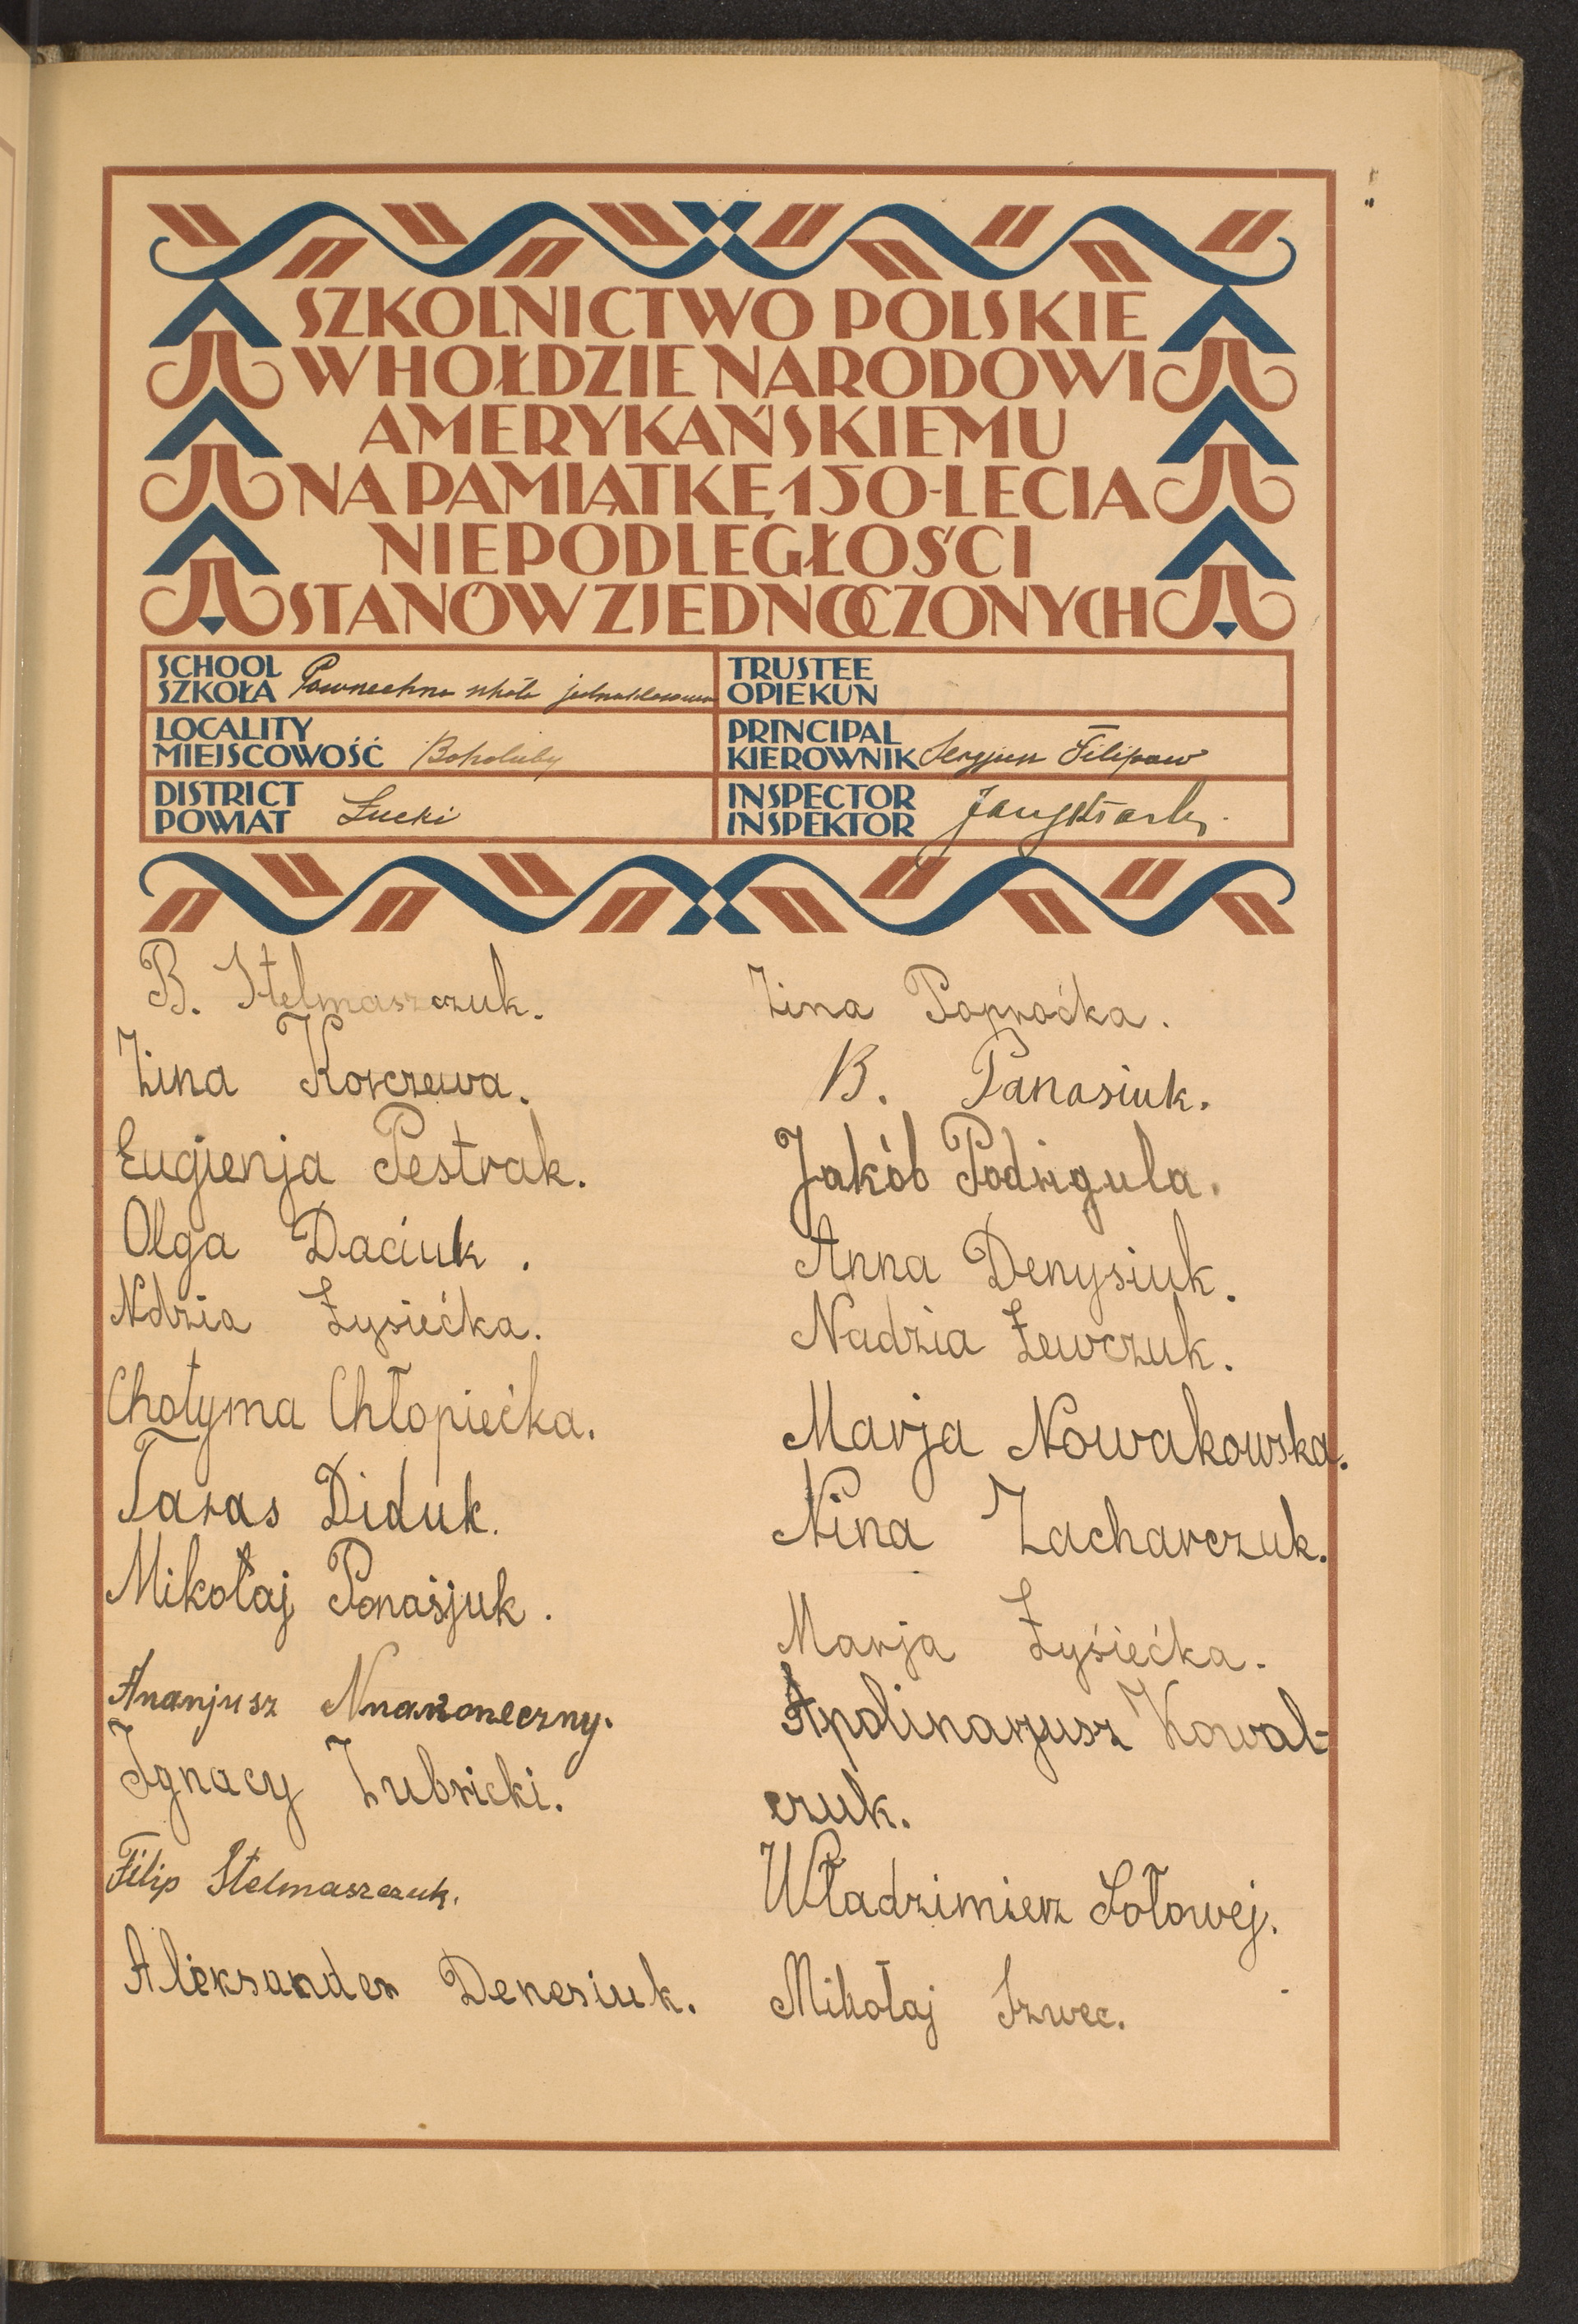 SZKOLNICTWO POLSKIE
W HOŁDZIE NARODOWI
AMERYKAŃSKIEMU
NA PAMIĄTKĘ 150-LECIA
NIEPODLEGŁOŚCI
STANÓW ZJEDNOCZONYCH
SCHOOL
SZKOŁA Powszechna szkoła jednoklasowa
LOCALITY
MIEJSCOWOŚĆ Boholuby
DISTRICT
POWIAT Łucki
TRUSTEE
OPIEKUN
PRINCIPAL
KIEROWNIK Sergjusz Filipow
INSPECTOR
INSPEKTOR
B. Stelmaszczuk.
Zina Korczewa.
Eugienja Pestrak.
Olga Daciuk.
Ndzia Łysiećka.
Chotyma Chłopiećka.
Taras Diduk.
Mikołaj Ponasjuk.
Ananjusz Nnakoneczny.
Ignacy Zubricki.
Filip Stelmaszczuk.
Aleksander Denesiuk.
Zina Poproćka.
B. Panasiuk.
Jakób Podrigula.
Anna Denysiuk.
Nadzia Łewczuk.
Marja Nowakowska.
Nina Zacharczuk.
Marja Łyśiećka.
Apolinarjusz Kowal-
czuk.
Władzimierz Sołowej.
Mikołaj Szwec.